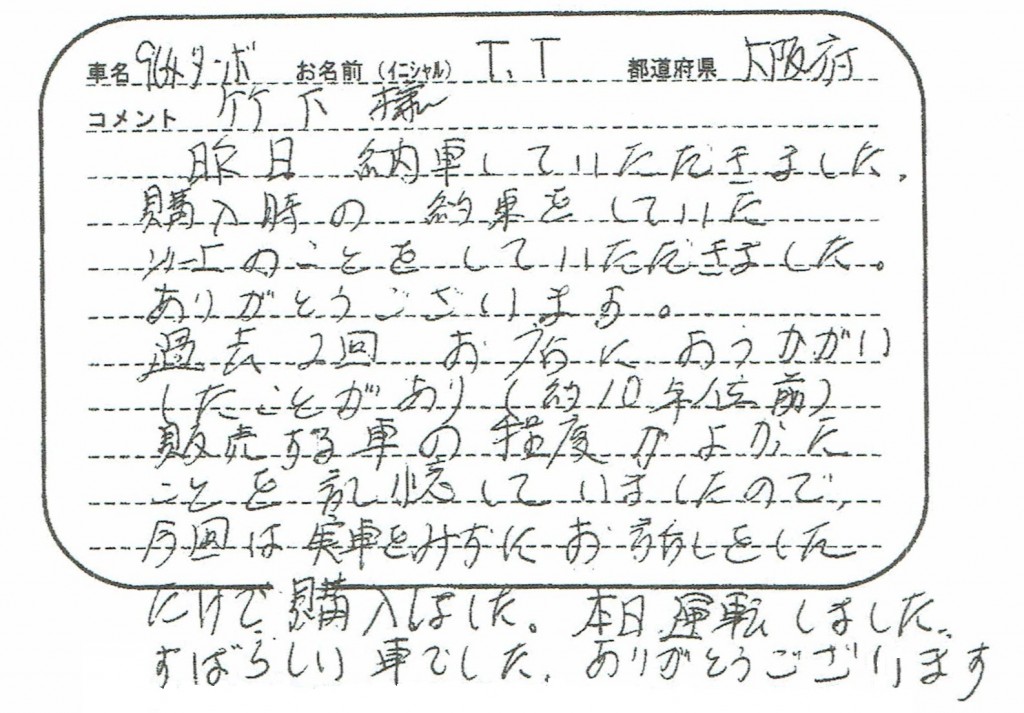 車名 964ターボ お名前 (イニシャル) T.T 都道府県 大阪府
コメント 竹下 様
昨日 納車していただきました.
購入時の 約束をしていた
以上のことをしていただきました。
ありがとうございます。
過去2回 お店におうかがい
したことがあり (約10年位前)
販売する車の程度がよかた
ことを記憶していましたので,
今回は実車をみずにお話しをした
だけで購入しました。本日運転しました.
すばらしい車でした. ありがとうございます